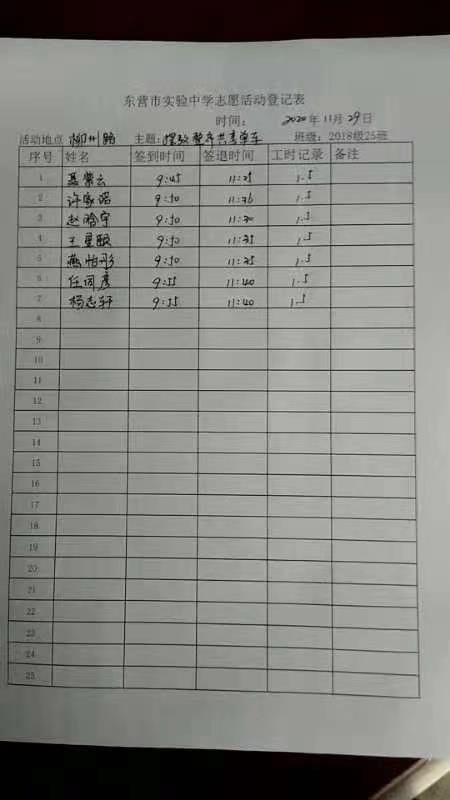 东营市实验中学志愿活动登记表
时间： 2020年11月29日
活动地点 柳州路 主题：摆放整齐共享单车 班级：2018级25班
序号 姓名 签到时间 签退时间 工时记录 备注
1 聂紫云 9:45 11:25 1.5
2 许家瑶 9:50 11:36 1.5
3 赵晗宇 9:50 11:30 1.5
4 王星颐 9:50 11:35 1.5
5 燕怡彤 9:50 11:35 1.5
6 任同彦 9:55 11:40 1.5
7 杨志轩 9:55 11:40 1.5
8
9
10
11
12
13
14
15
16
17
18
19
20
21
22
23
24
25